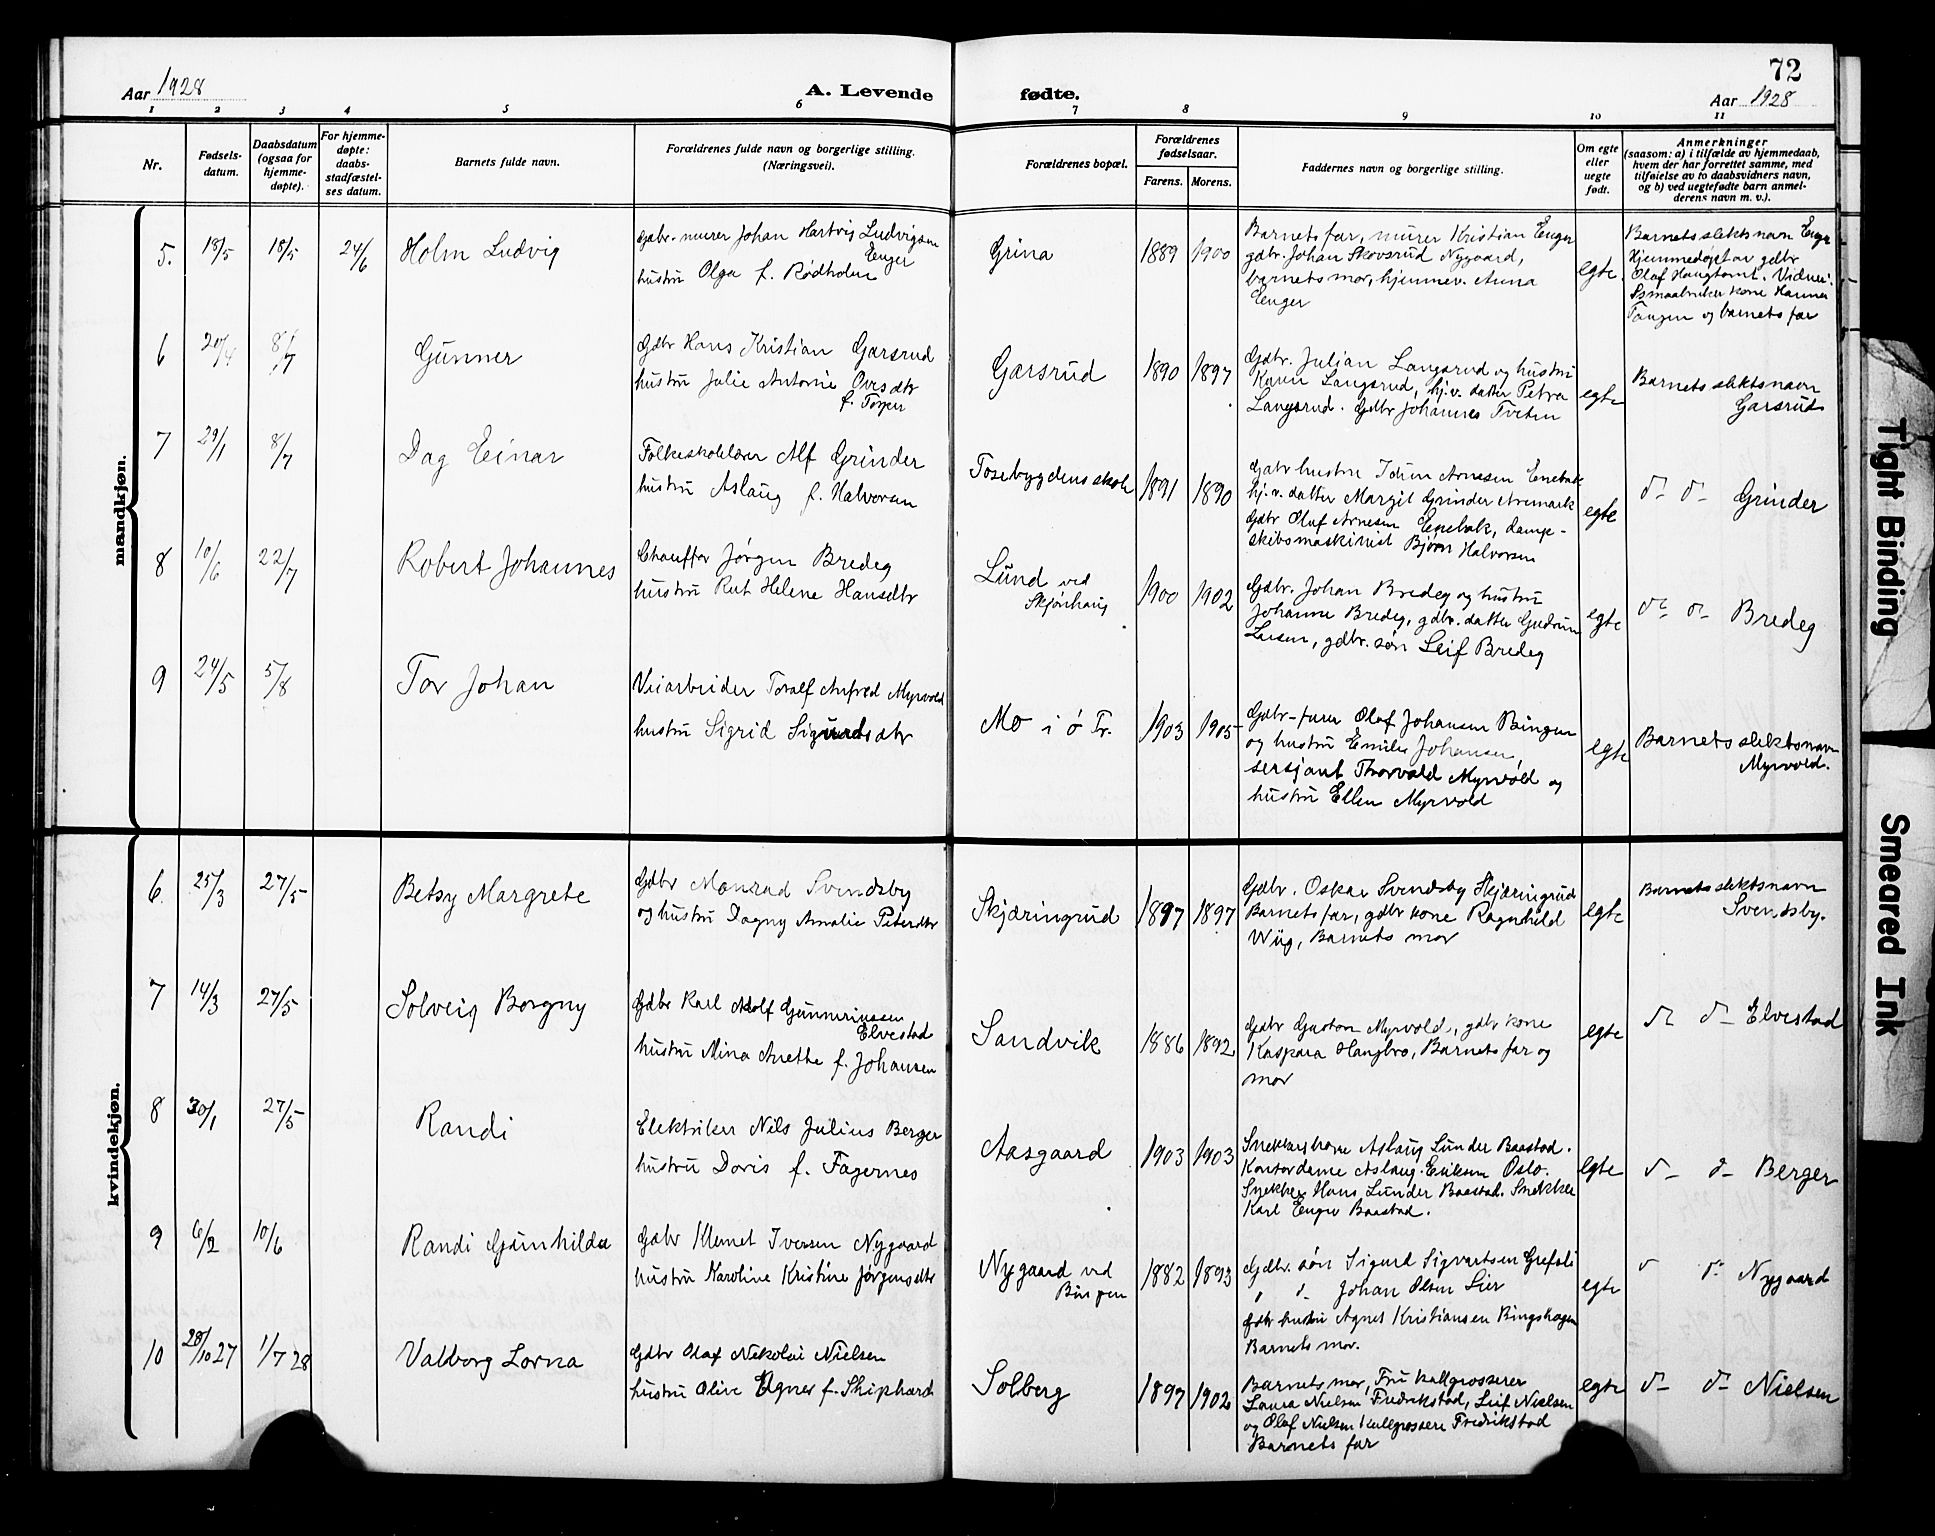 72
Aar 1928
A. Levende
fødte.
Aar 1928
1 2 3 4 5 6 7 8 9 10 11
Nr.
Fødsels-
datum.
Daabsdatum
(ogsaa for
hjemme-
døpte).
For hjemme-
døpte:
daabs-
stadfæstel-
ses datum.
Barnets fulde navn.
Forældrenes fulde navn og borgerlige stilling.
(Næringsvei).
Forældrenes bopæl.
Forældrenes
fødselsaar.
Farens. Morens.
Faddernes navn og borgerlige stilling.
Om egte
eller
uegte
født.
Anmerkninger
(saasom: a) i tilfælde av hjemmedaab,
hvem der har forrettet samme, med
tilføielse av to daabsvidners navn,
og b) ved uegtefødte barn anmel-
derens navn m. v.).
mandkjøn.
5. 18/5 18/5 24/6 Holm Ludvig
Gdbr. murer Johan Hartvig Ludvigsen
Enger
hustru Olga f. Rødholm
Grina 1889 1900
Barnets far, murer Kristian Enger
gdbr. Johan Skovsrud Nygaard,
barnets mor, hjemmev. Anna
Enger
egte
Barnets slektsnavn Enger
Hjemmedøpt av gdbr
Olaf Haugtomt. Vidner:
Smaabruker kone Hanna
Tangen og barnets far
6 20/4 8/7 Gunner
Gdbr Hans Kristian Garsrud
hustru Julie Antonie Ovesdtr
f. Torper
Garsrud 1890 1897
Gdbr. Julian Langsrud og hustru
Karen Langsrud, hj.v. datter Petra
Langsrud. Gdbr Johannes Tveten
egte
Barnets slektsnavn
Garsrud
7 29/1 8/7 Dag Einar
Folkeskolelærer Alf Grinder
hustru Aslaug f. Halvorsen
Tosebygdens skole 1891 1890
Gdbr hustru Idun Arnesen Enebak
hj.v. datter Margit Grinder Aremark
Gdbr Olaf Arnesen Enebak, damp-
skibsmaskinist Bjørn Halvorsen
egte
d- d- Grinder
8 10/6 22/7 Robert Johannes
Chauffør Jørgen Bredeg
hustru Rut Helene Hansdtr
Lund ved
Skjønhaug
1900 1902
Gdbr. Johan Bredeg og hustru
Johanne Bredeg, gdbr. datter Gudrun
Larsen, gdbr. søn Leif Bredeg
egte
d- d- Bredeg
9 24/5 5/8 Tor Johan
Veiarbeider Toralf Anfred Myrvold
hustru Sigrid Sigurdsdtr
Mo i ø Tr. 1903 1905
Gdbr-furer Olaf Johansen Bingen
og hustru Emilie Johansen,
sersjant Thorvald Myrvold og
hustru Ellen Myrvold
egte
Barnets slektsnavn
Myrvold.
kvindekjøn.
6. 25/3 27/5 Betsy Margrete
Gdbr Monrad Svendsby
og hustru Dagny Amalie Petersdtr
Skjæringrud 1897 1897
Gdbr. Oskar Svendsby Skjæringrud
Barnets far, gdbr kone Ragnhild
Wiig, Barnets mor
egte
Barnets slektsnavn
Svendsby.
7 14/3 27/5 Solveig Borgny
Gdbr Karl Adolf Gunneriussen
Elvestad
hustru Mina Anette f. Johansen
Sandvik 1886 1892
Gdbr Gustav Myrvold, gdbr kone
Kaspara Haugbro, Barnets far og
mor
egte
d- d- Elvestad
8 30/1 27/5 Randi
Elektriker Nils Julius Berger
hustru Doris f. Fagernes
Aasgaard 1903 1903
Snekkerkone Aslaug Lunder Baastad.
Kontordame Aslaug Eriksen Oslo.
Snekker Hans Lunder Baastad. Snekker
Karl Enger Baastad.
egte
d- d- Berger
9 6/2 10/6 Randi Gunhilda
Gdbr Klemet Iversen Nygaard
hustru Karoline Kristine Jørgensdtr
Nygaard ved
Bingen
1882 1893
Gdbr. søn Sigurd Sigvartsen Grefsli
" d- Johan Olsen Lier
gdbr hustru Agnes Kristiansen Bingshagen
Barnets mor.
egte
d d- Nygaard
10 28/10 27 1/7 28 Valborg Lorna
Gdbr Olaf Nikolai Nielsen
hustru Olive Agnes f. Shiphard
Solberg 1897 1902
Barnets mor, Fru kullgrosserer
Laura Nielsen Fredrikstad, Leif Nielsen
og Olaf Nielsen Kullgrossere Fredrikstad
Barnets far
egte
d- d- Nielsen
Tight Binding
Smeared Ink